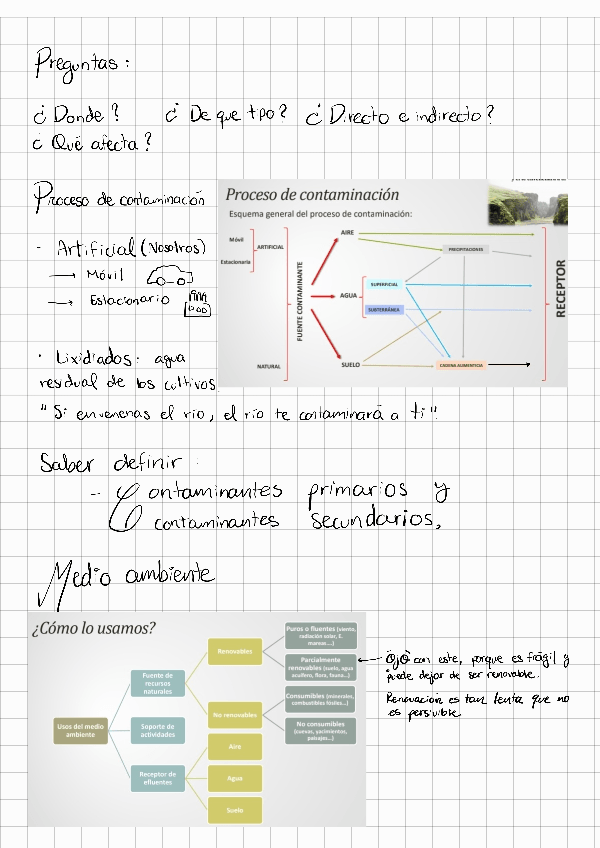 Preguntas:
¿Donde? ¿De que tpo? ¿Directo e indirecto?
¿Qué afecta?
Proceso de contaminación
- Artificial (Nosotros)
→ Móvil
→ Estacionario
· Lixidiados: agua
residual de los cultivos.
"Si envenenas el río, el río te contaminará a ti".
Proceso de contaminación
Esquema general del proceso de contaminación:
Móvil
Estacionaria
ARTIFICIAL
NATURAL
FUENTE CONTAMINANTE
AIRE
AGUA
SUELO
PRECIPITACIONES
SUPERFICIAL
SUBTERRÁNEA
CADENA ALIMENTICIA
RECEPTOR
Saber definir.
-- Contaminantes primarios y
contaminantes secundarios,
Medio ambiente
¿Cómo lo usamos?
Usos del medio
ambiente
Fuente de
recursos
naturales
Soporte de
actividades
Receptor de
efluentes
Renovables
No renovables
Aire
Agua
Suelo
Puros o fluentes (viento,
radiación solar, E.
mareas ...)
Parcialmente
renovables (suelo, agua
acuífero, flora, fauna...)
Consumibles (minerales,
combustibles fósiles...)
No consumibles
(cuevas, yacimientos,
paisajes...)
← OJO con este, porque es frágil y
puede dejar de ser renovable.
Renovación es tan lenta que no
es persivible